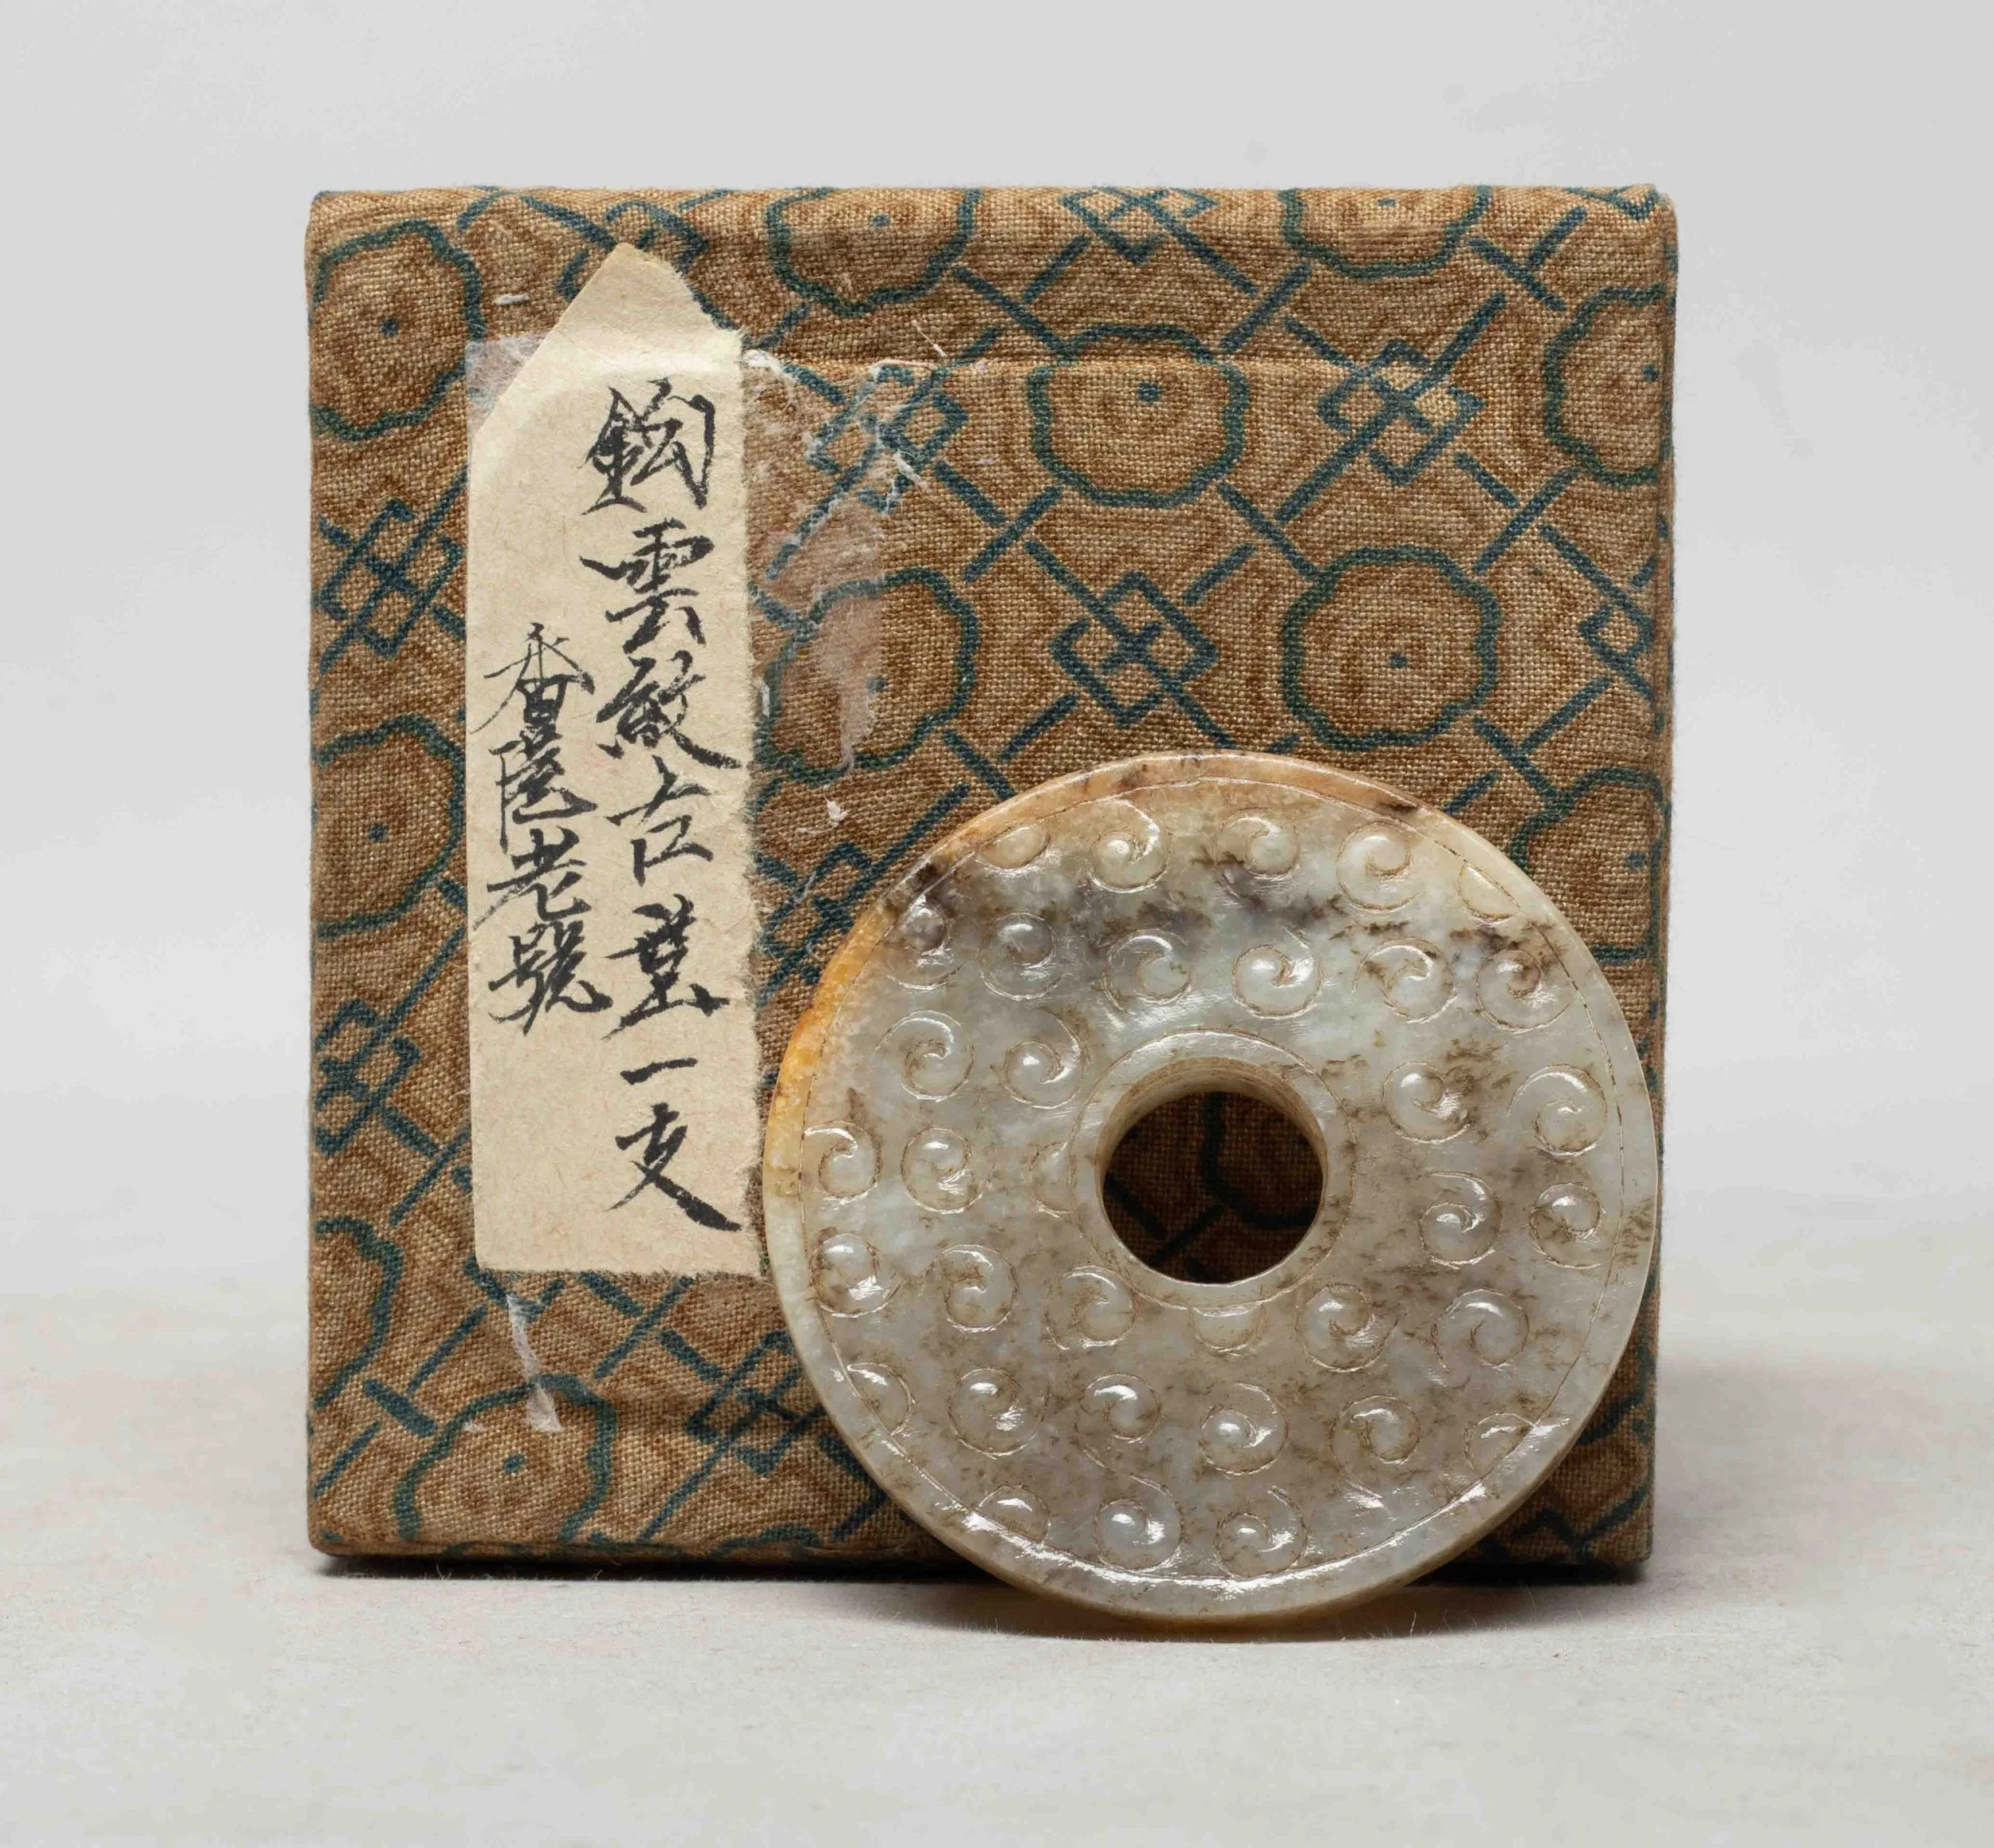 鈎雲紋古璧一支
香老號